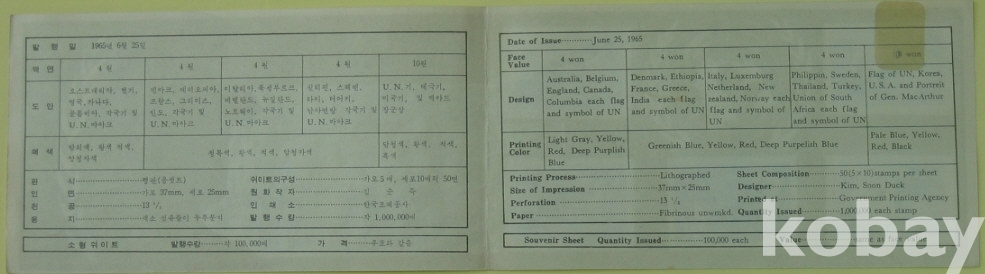 발 행 일 1965년 6월 25일
액 면 4 원 4 원 4 원 4 원 10원
도 안
오스트레리아, 벨기,
영국, 카나다,
각국기 및
U. N. 마아크
덴마크, 에티오피아,
프랑스, 그리이스,
인도, 각국기 및
U. N. 마아크
이탈리아, 룩셈부르크,
노르웨이, 각국기 및
U. N. 마아크
필리핀, 스웨덴,
타이, 터어키,
각국기 및
U. N. 마아크
U. N. 기, 태극기,
미국기, 및 맥아더
장군상
쇄 색
황색 적색,
청록색, 황색, 적색,
황색, 적색,
흑색
판 식 평판(옵셋트)
인 면 가로 37mm, 세로 25mm
천 공 13 ½
용 지
쉬이트의구성 가로 5매, 세로10매의 50면
원 화 작 자 김 순 득
인 쇄 소 한국조폐공사
발 행 수 량 각 1,000,000매
소 형 쉬 이 트 발행수량 각 100,000매 가 격 우표와 같음
Date of Issue June 25, 1965
Face Value 4 won 4 won 4 won 4 won won
Design
Australia, Belgium,
England, Canada,
Columbia each flag
and symbol of UN
Denmark, Ethiopia,
France, Greece,
India each flag
and symbol of UN
Italy, Luxemburg
Netherland, New
zealand, Norway each
flag and symbol of
UN
Philippin, Sweden,
Thailand, Turkey,
Union of South
Africa each flag
and symbol of UN
Flag of UN, Korea,
U. S. A. and Portreit
of Gen. MacArthur
Printing Color
Light Gray, Yellow,
Red, Deep Purplish
Blue
Greenish Blue, Yellow, Red, Deep Purpelish Blue
Pale Blue, Yellow,
Red, Black
Printing Process Lithographed
Size of Impression 37mm×25mm
Perforation 13 ½
Paper Fibrinous unwmkd.
Sheet Composition 50(5×10)stamps per sheet
Designer Kim, Soon Duck
Printed Government Printing Agency
Quantity Issued 1,000,000 each stamp
Souvenir Sheet Quantity Issued 100,000 each Value same as face value
kobay